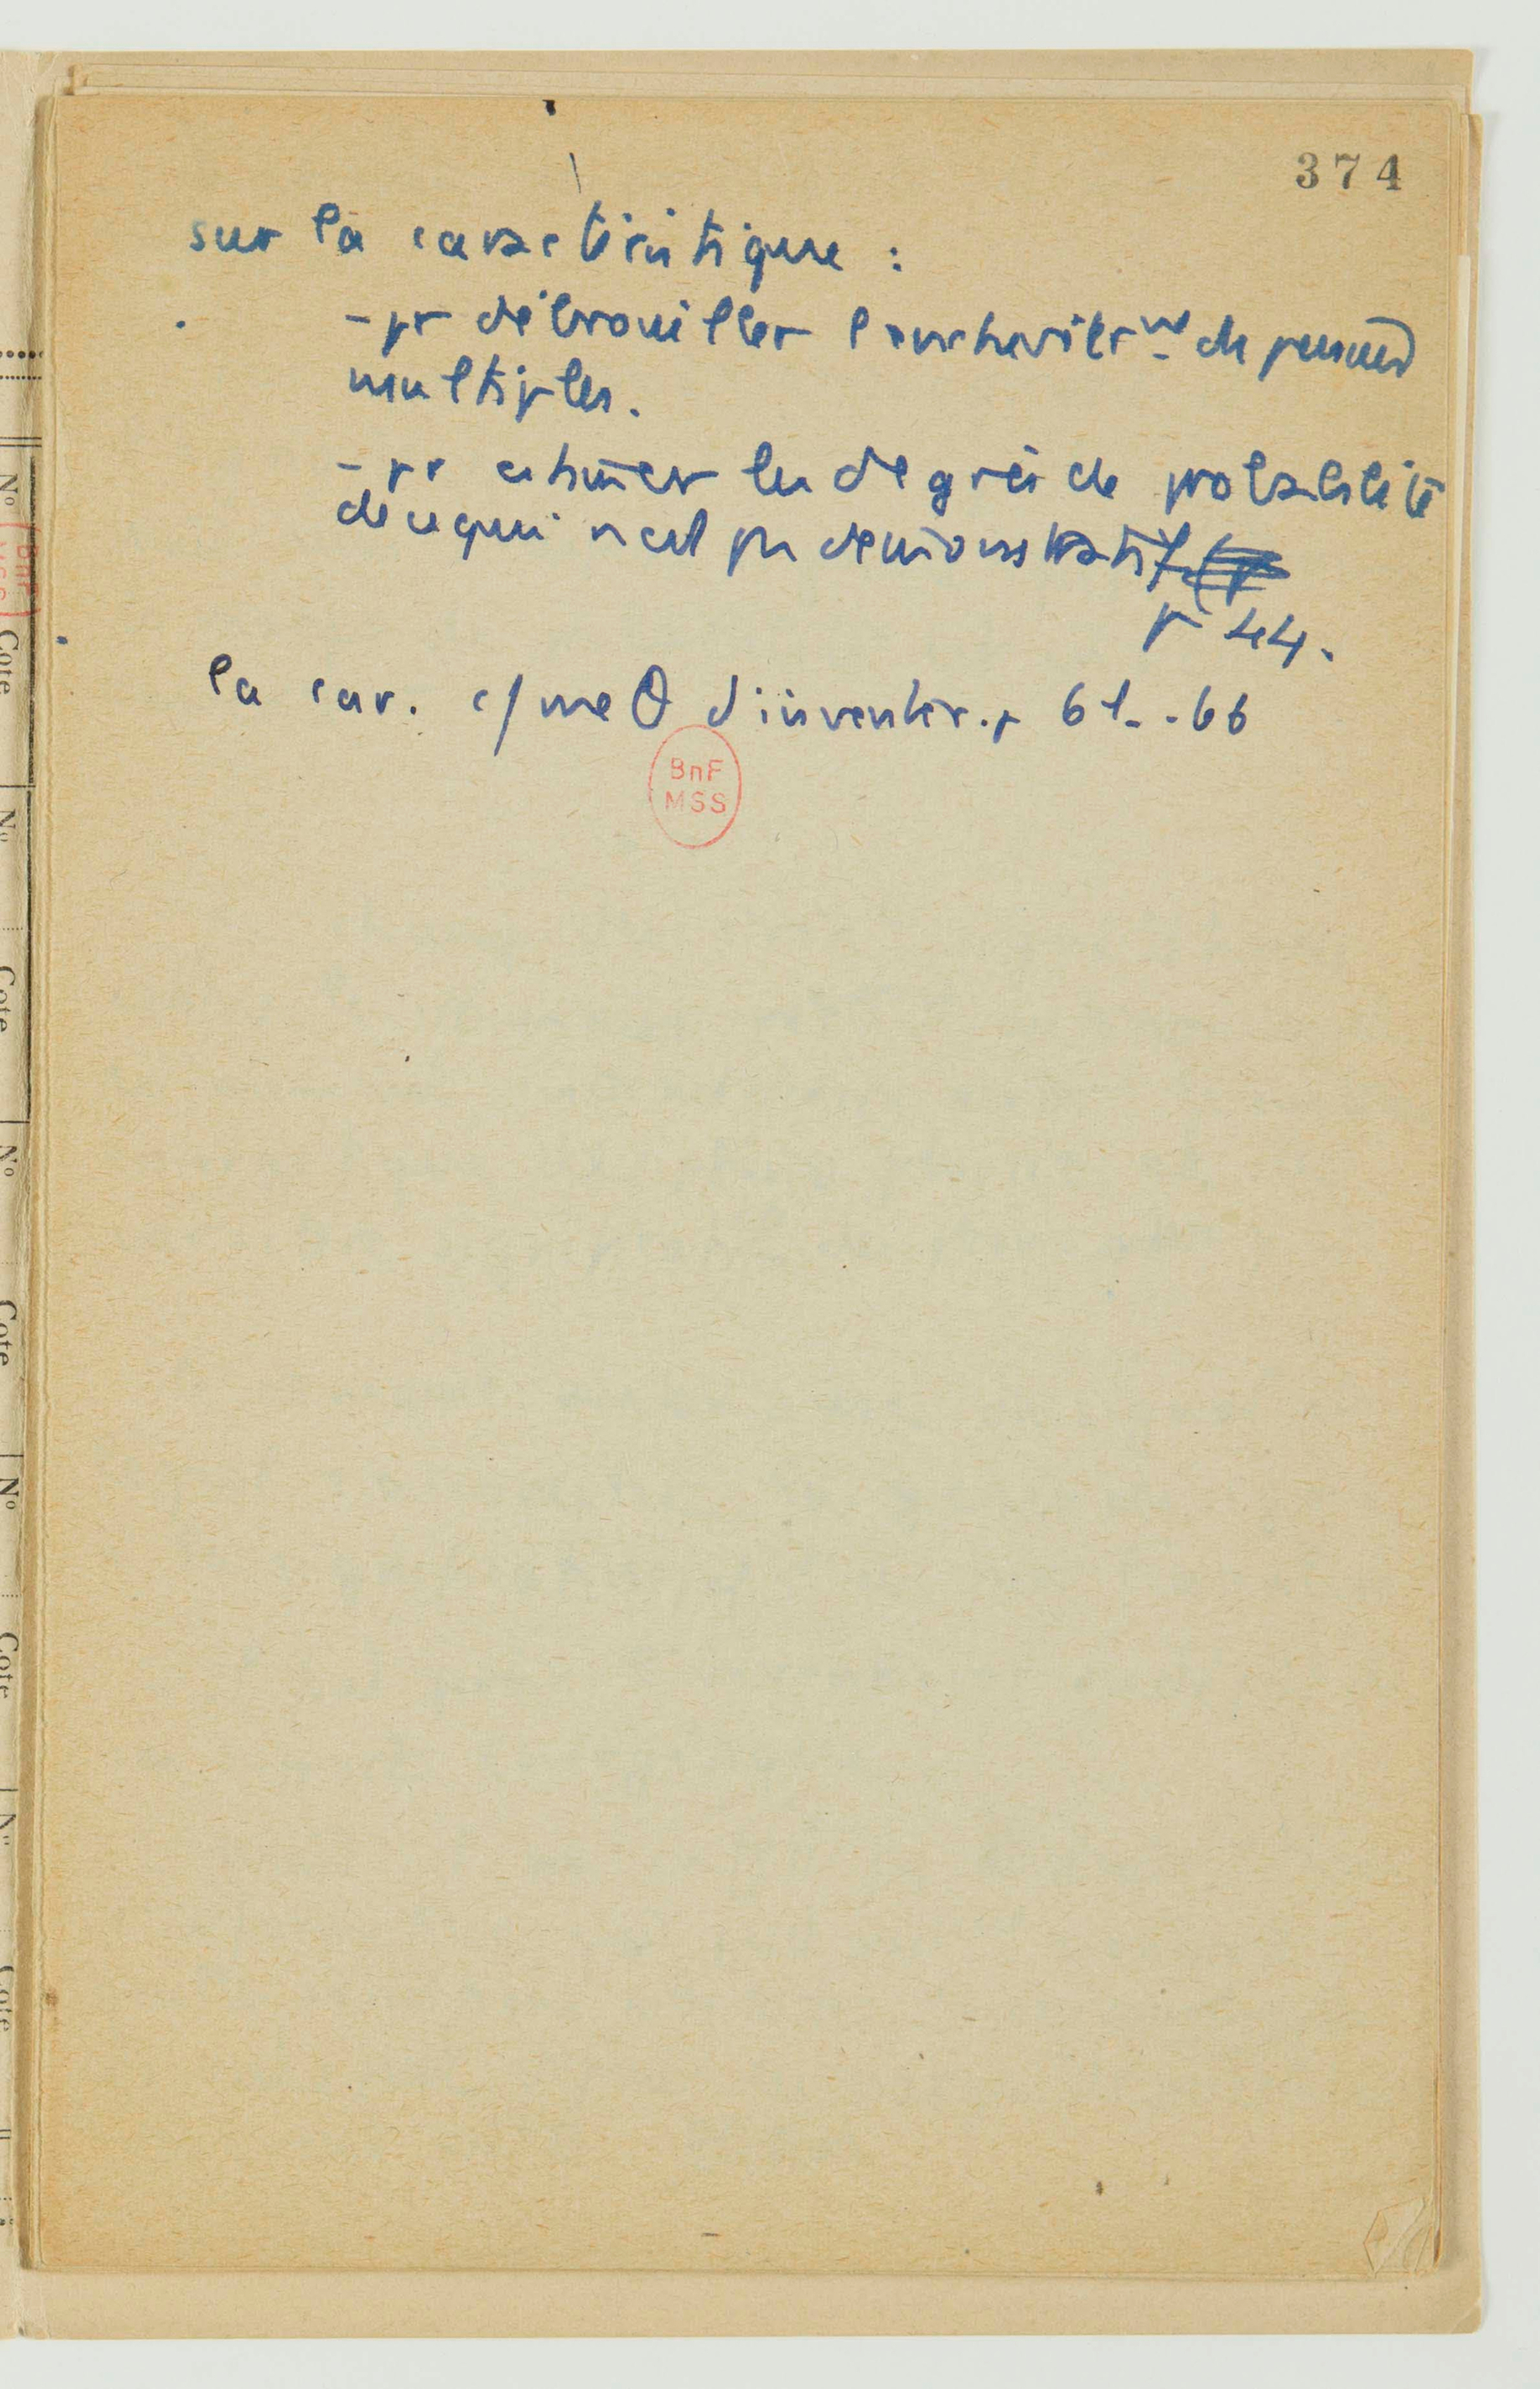 374
sur la caractéristique :
- pr débrouiller l'enchevêtrmt de pensées
multiples.
- pr estimer les degrés de probabilité
de ce qui n'est pas démonstratif
p 44.
la car. c/ me θ d'inventer. p 61--66
BnF
MSS
N°
BnF
MSS
Cote
N°
Cote
N°
Cote
N°
Cote
N°
Cote